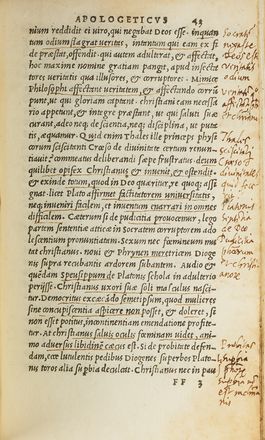 APOLOGETICVS 43
nium reddidit ei uiro, qui negabat Deos esse. inquan
tum odium flagrat ueritatis, intentum qui eam ex fi
de præstat, offendit. qui autem adulterat, & affectat,
hoc maxime nomine gratiam pangit, apud insectatores
ueritatis qua illusores, & corruptores. Mimice
Philosophi affectant ueritatem, & affectando corrum
punt, ut qui gloriam captant. christiani eam necessa
rio appetunt, & integre præstant, ut qui saluti suæ
curant, adeo neq; de scientia, neq; disciplina, ut puta
tis, æquamur. Quid enim Thales ille princeps physi
corum sciscitanti Crœso de diuinitate certum renun
tiauit? commeatus deliberandi sæpe frustratus. deum
quilibet opifex Christianus & inuenit, & ostendit
& exinde totum, quod in Deo quæritur, re quoq; assi
gnat. licet Plato affirmet factitatorem uniuersitatis,
neq; inueniri facilem, et inuentum enarrari in omnes
difficilem. Cæterum si de pudicitia prouocemur, lego
partem sententiæ atticæ in Socratem corruptorem ado
lescentium pronuntiatum. Sexum nec fœmineum mu
tat christianus. noui & Phrynen meretricem Diogenis
supra recubantis ardorem subantem. Audio &
quendam Speusippum de Platonis schola in adulterio
perisse. Christianus uxori suæ soli masculus nasci
tur. Democritus excæcando semetipsum, quod mulieres
sine concupiscentia aspicere non posset, & doleret, si
non esset potitus, incontinentiam emendatione profite
tur. At christianus saluis oculis fœminam uidet, ani
mo aduersus libidinem cæcus est. Si de probitate defendam,
ecce lutulentis pedibus Diogenes superbos Platonis
toros alia superbia deculcat. Christianus nec in pau
FF 3